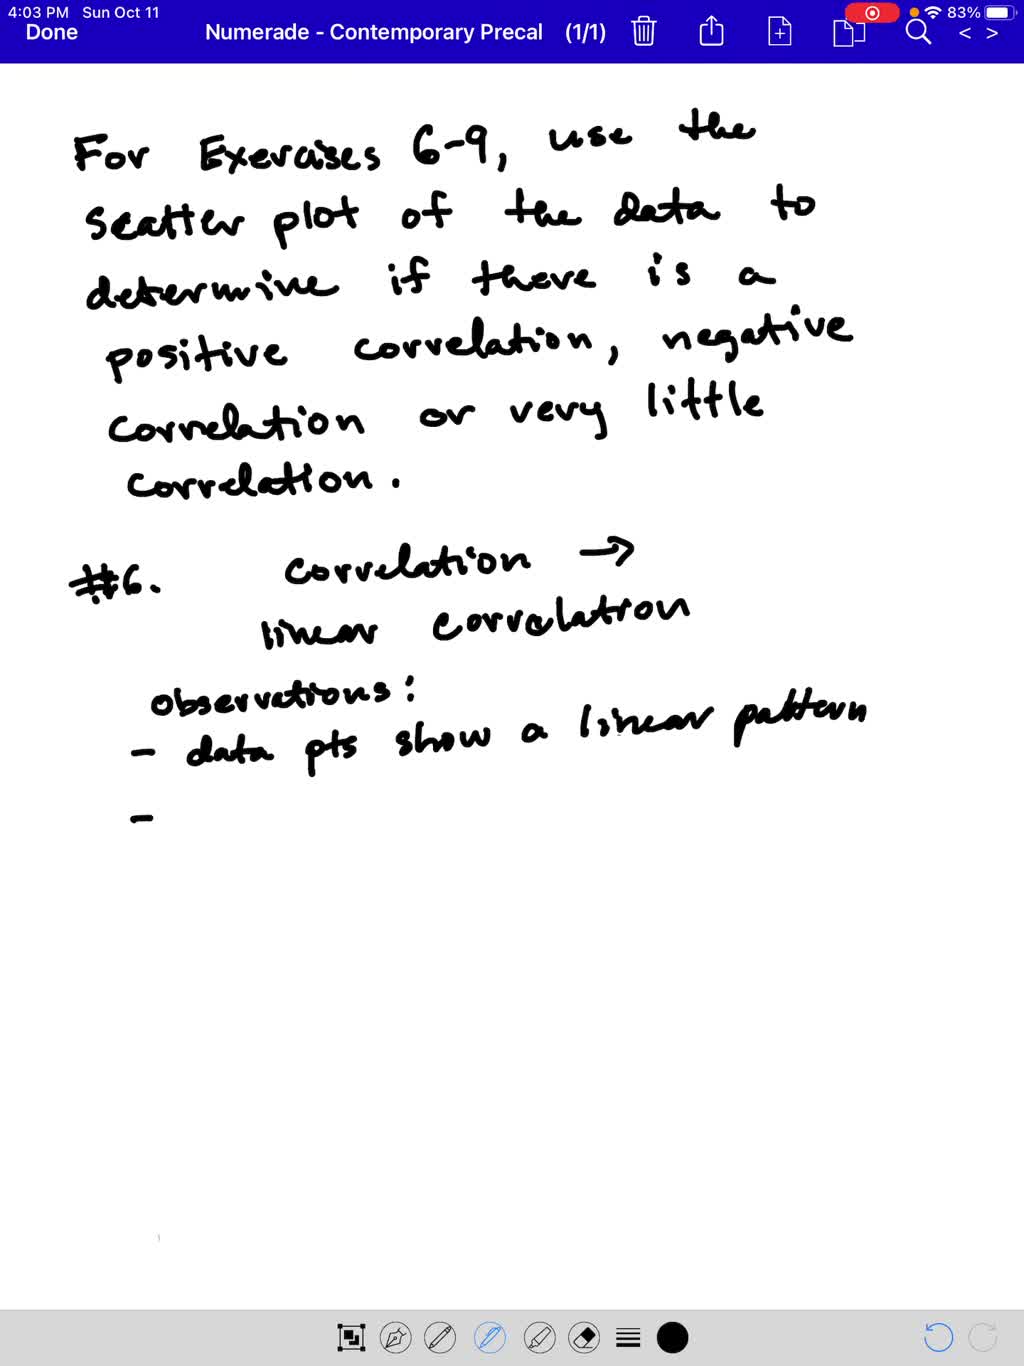 4:03 PM Sun Oct 11 83%
Done Numerade - Contemporary Precal (1/1) < >
For Exercises 6-9, use the
scatter plot of the data to
determine if there is a
positive correlation, negative
correlation or very little
correlation.
#6. correlation →
linear correlation
observations:
- data pts show a linear pattern
-